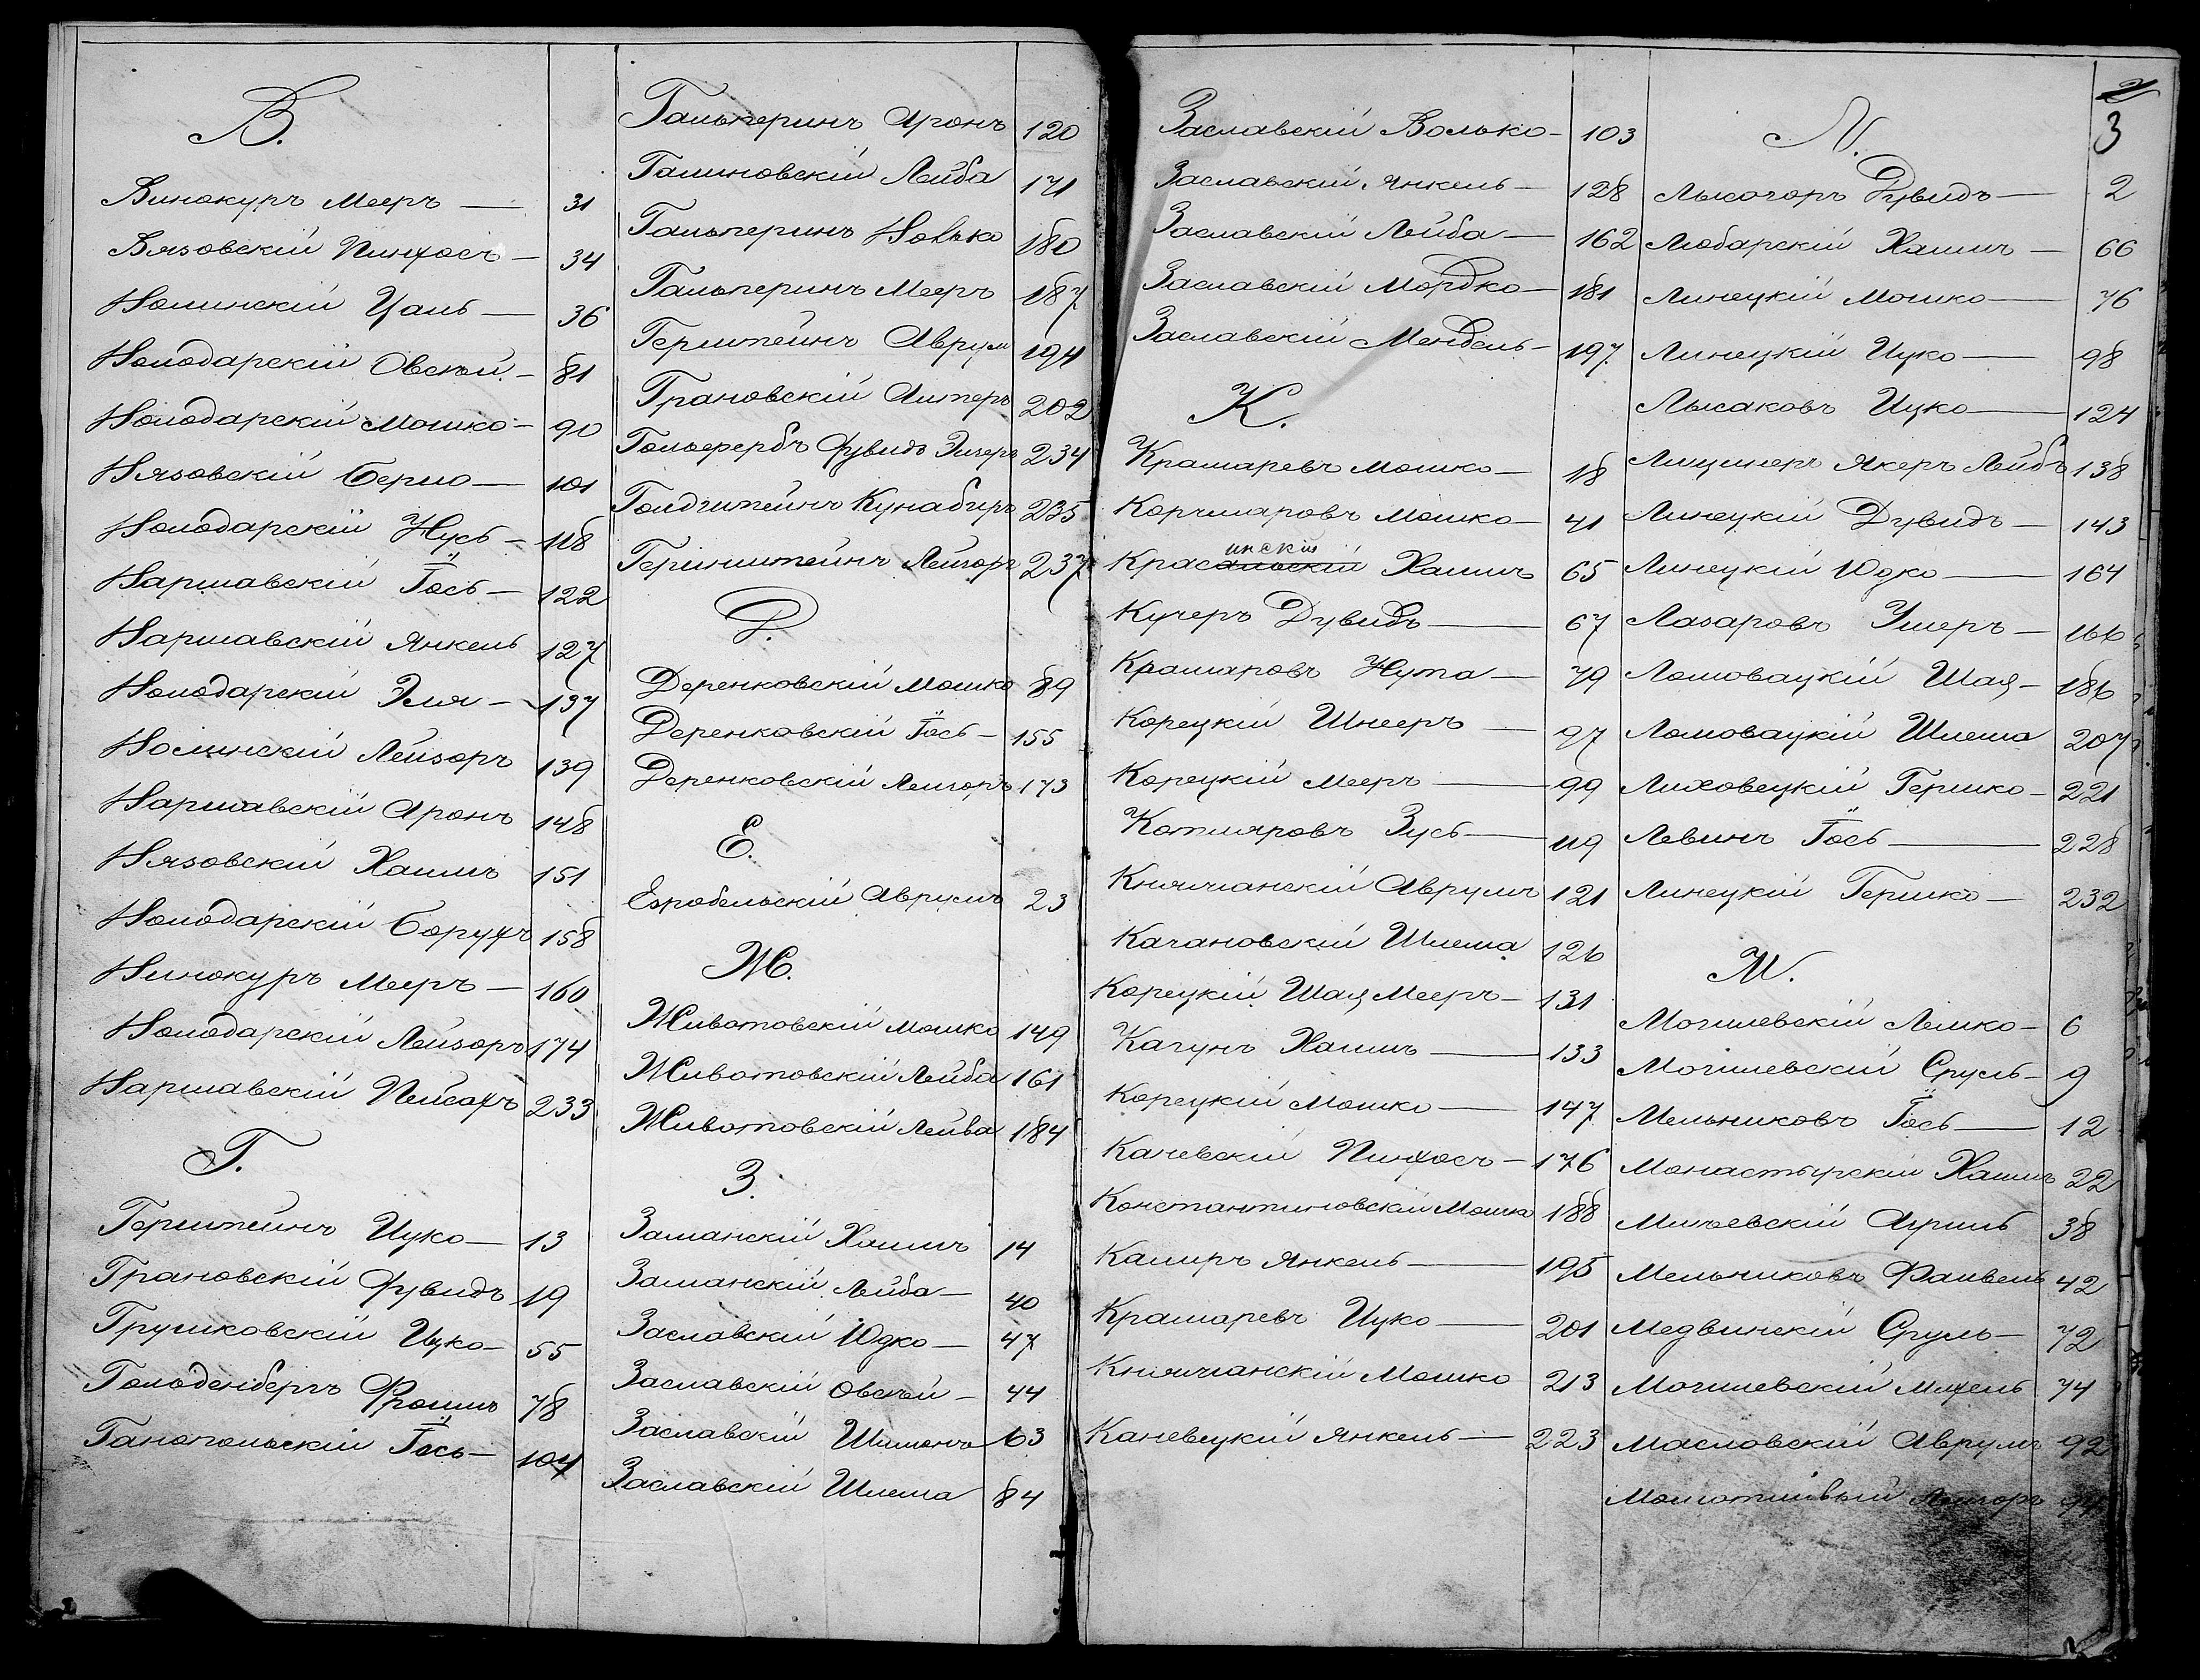 В.
Винокуръ Мееръ — 31
Вязовскій Пинхосъ — 34
Волинскій Цаль — 36
Володарскій Овсѣй — 81
Володарскій Мошко — 90
Вязовскій Берко — 101
Володарскій Нусь — 118
Варшавскій Іось — 122
Варшавскій Янкель 127
Володарскій Эля — 137
Волинскій Лейзоръ 139
Варшавскій Аронъ 148
Вязовскій Хаимъ 151
Володарскій Борухъ 158
Винокуръ Мееръ — 160
Володарскій Лейзоръ 174
Варшавскій Пейсахъ 233
Г.
Герштейнъ Ицко — 13
Грановскій Дувидъ 19
Грушковскій Ицко — 55
Гольденбергъ Фроимъ 78
Ганопольскій Іось — 104
Гальперинъ Аронъ 120
Галиновскій Лейба 171
Гальперинъ Волько 180
Гальперинъ Мееръ 187
Герштейнъ Аврум 194
Грановскій Алтеръ 202
Гольдфербъ Дувидъ Элиеръ 234
Голдштейнъ 235
Геринштейнъ Лейзоръ 237
Д.
Деренковскій Мошко 89
Деренковскій Іось — 155
Деренковскій Лейзоръ 173
Е.
Аврумъ 23
Ж.
Животовскій Мошко 149
Животовскій Лейба 161
Животовскій Лейба 184
З.
Заманскій Хаимъ 14
Заманскій Лейба — 40
Заславскій Юдко — 47
Заславскій Овсѣй — 44
Заславскій Шимонъ 63
Заславскій Шлема 84
Заславскій Волько — 103
Заславскій Янкель — 128
Заславскій Лейба — 162
Заславскій Мордко — 181
Заславскій Мендель — 197
К.
Крамаревъ Мошко — 18
Корчмаровъ Мошко — 41
инскій
Красильскій Хаимъ 65
Кучеръ Дувидъ — 67
Крамаровъ Нута — 79
Корецкій Шнееръ — 97
Корецкій Мееръ — 99
Котляровъ Зусь — 119
Княжчанскій Аврумъ 121
Качановскій Шлема 126
Корецкій Шая Мееръ — 131
Кагунъ Хаимъ — 133
Корецкій Мошко — 147
Каневскій Пинхосъ — 176
Константиновскій Мошко 188
Калиръ Янкель — 195
Крамаревъ Ицко — 201
Княжчанскій Мошко 213
Каневецкій Янкель — 223
2
3
Л.
Лысогоръ Дувидъ — 2
Любарскій Хаимъ — 66
Линецкій Мошко — 76
Линецкій Ицко — 98
Лысаковъ Ицко — 124
Лицинеръ Якеръ Лейбъ 138
Линецкій Дувидъ — 143
Линецкій Юдко — 164
Лазаровъ Умеръ — 166
Ломовацкій Шая — 186
Ломовацкій Шлема 207
Лиховецкій Гершко — 221
Левинъ Іось — 228
Линецкій Гершко — 232
М.
Могилевскій Лейко — 6
Могилевскій Сруль — 9
Мельниковъ Іось — 12
Монастырскій Хаимъ 22
Миньевскій Априль 38
Мельниковъ Файвель 42
Медвинскій Сруль — 72
Могилевскій Михель 74
Масловскій Аврумъ 92
Молотливый Лейзоръ